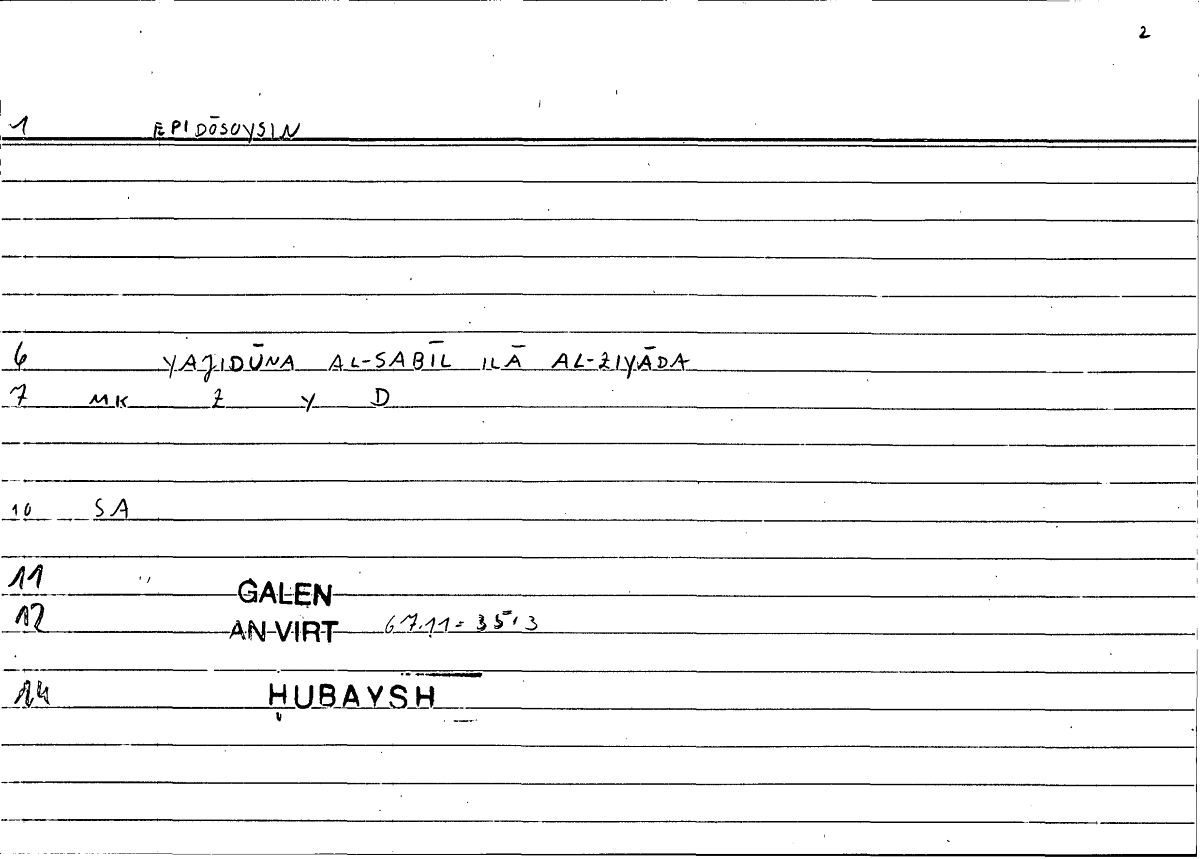 2
1 EPIDŌSOYSIN
6 YAJIDŪNA AL-SABĪL ILĀ AL-ZIYĀDA
7 MK Z Y D
10 SA
11 GALEN
12 AN VIRT 67.11 = 35,3
14 ḤUBAYSH